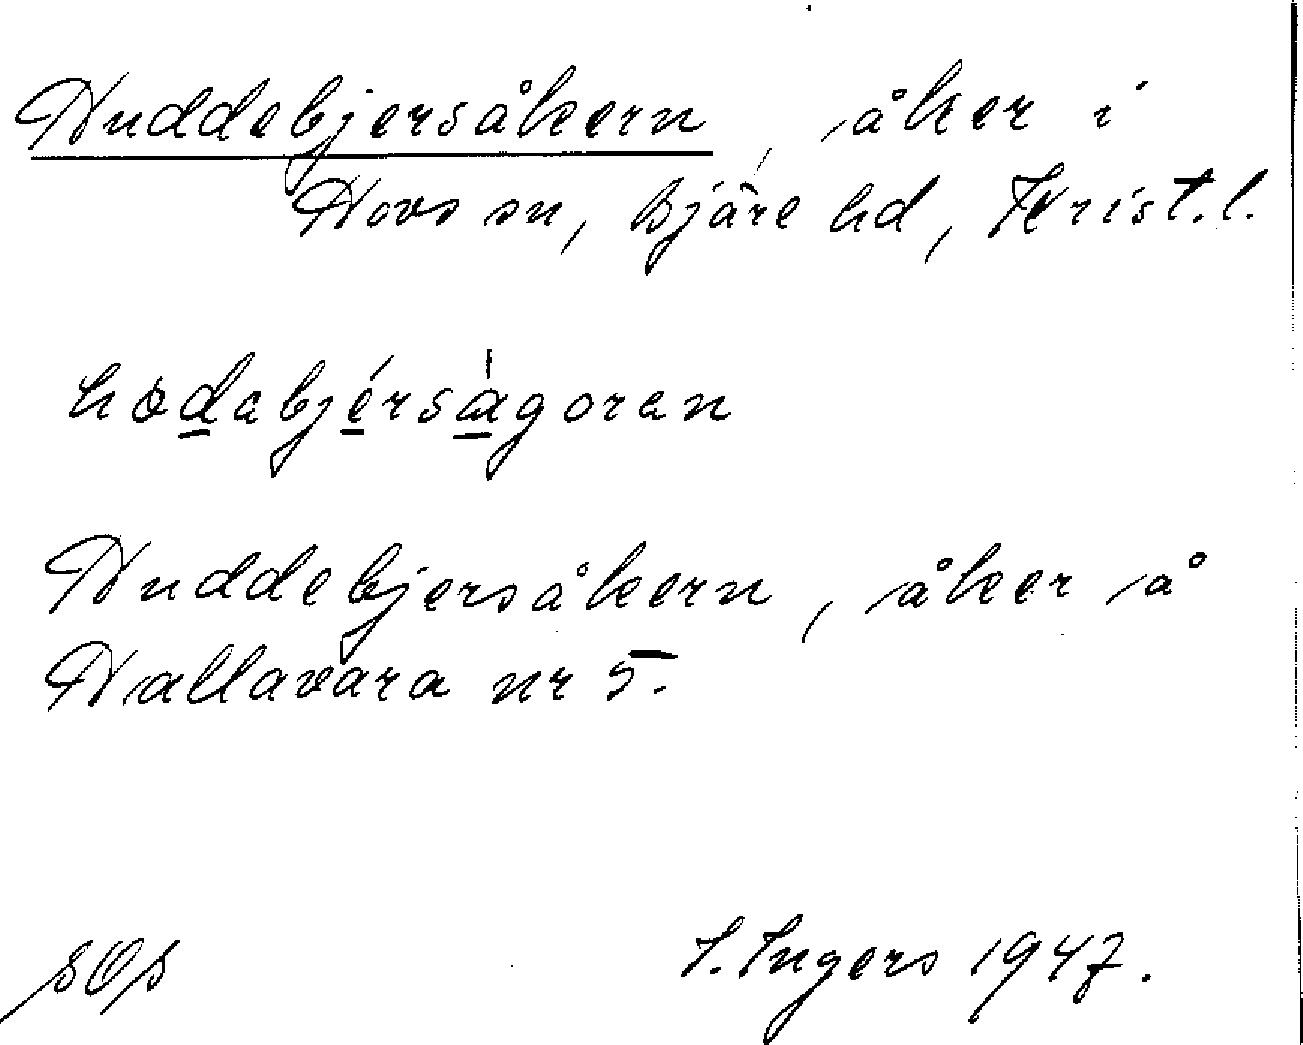 Huddebjersåkern, åker i
Hovs sn, Bjäre hd, Krist.l.
hodabjérságoran
Huddebjersåkern, åker å
Hallavara nr 5.
I. Ingers 1947.